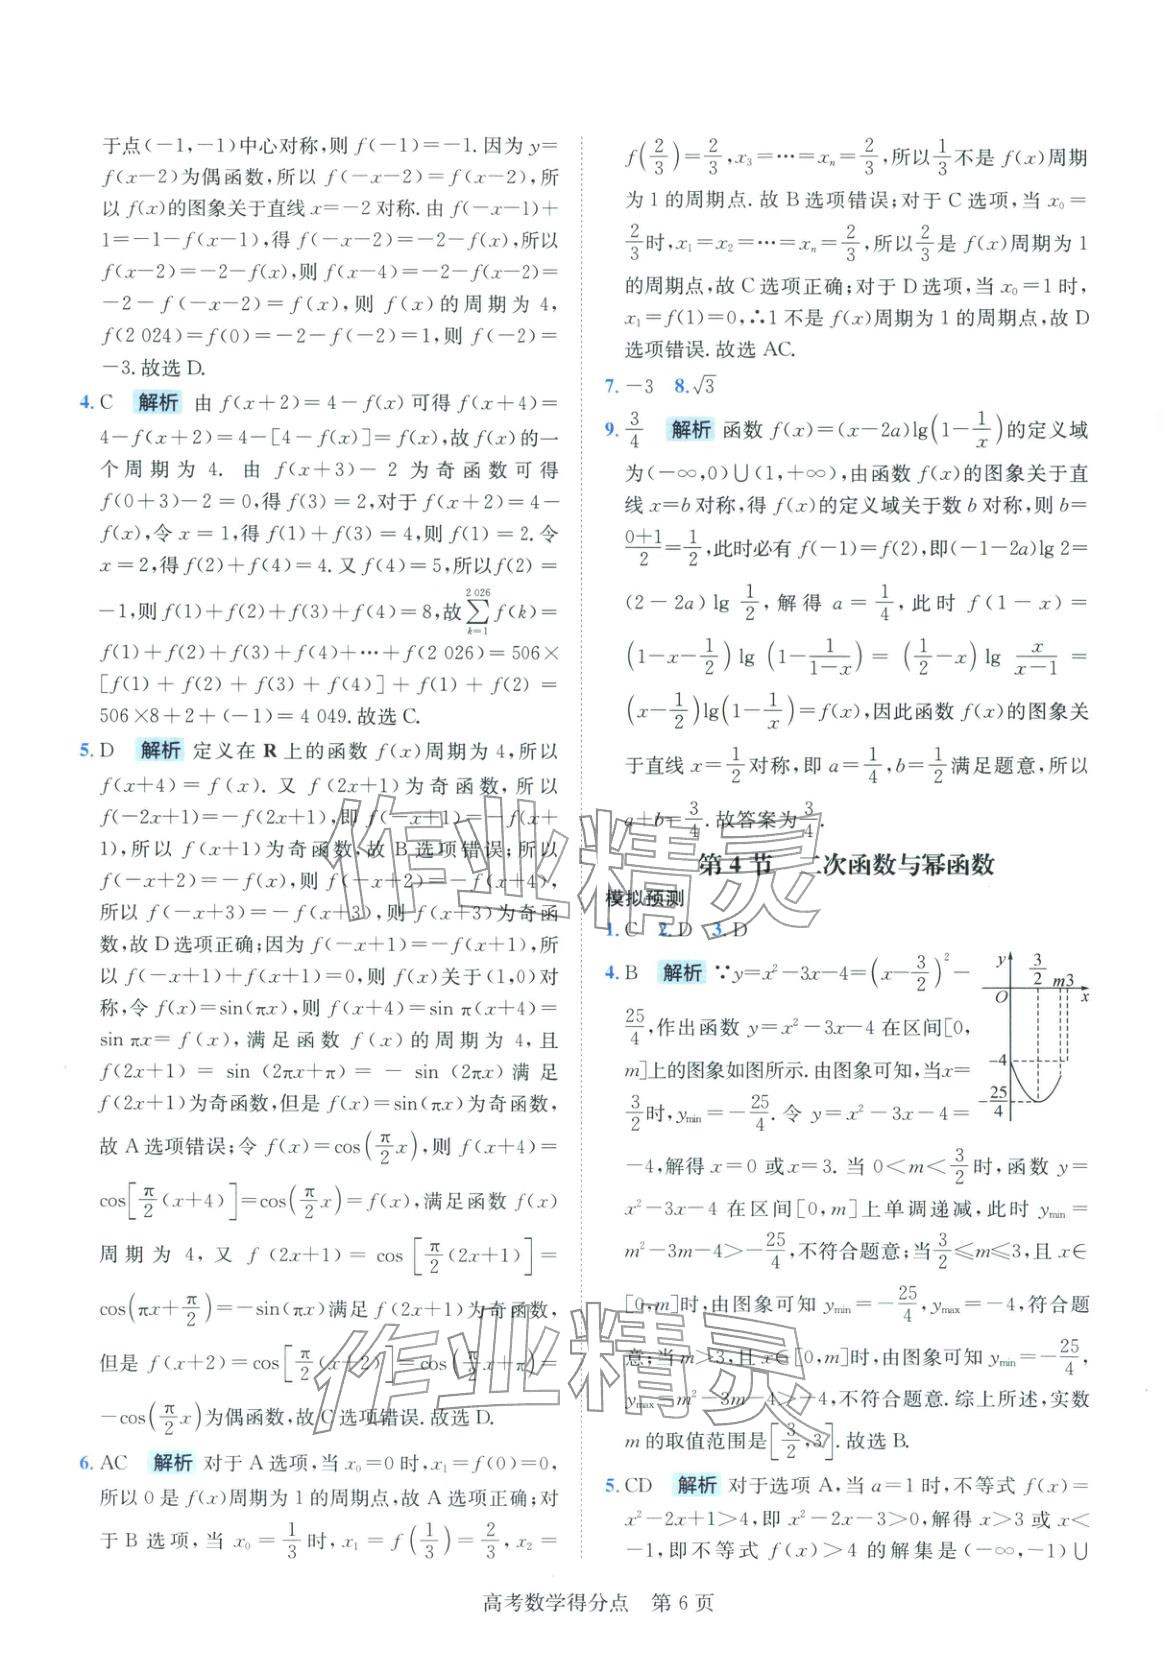 于点(-1,-1)中心对称,则 f(-1)=-1.因为 y=
f(x-2)为偶函数,所以 f(-x-2)=f(x-2),所
以 f(x)的图象关于直线 x=-2 对称.由 f(-x-1)+
1=-1-f(x-1),得 f(-x-2)=-2-f(x),所以
f(x-2)=-2-f(x),则 f(x-4)=-2-f(x-2)=
-2-f(-x-2)=f(x),则 f(x)的周期为 4,
f(2 024)=f(0)=-2-f(-2)=1,则 f(-2)=
-3.故选 D.
4. C 解析 由 f(x+2)=4-f(x)可得 f(x+4)=
4-f(x+2)=4-[4-f(x)]=f(x),故 f(x)的一
个周期为 4. 由 f(x+3)-2 为奇函数可得
f(0+3)-2=0,得 f(3)=2,对于 f(x+2)=4-
f(x),令 x=1,得 f(1)+f(3)=4,则 f(1)=2.令
x=2,得 f(2)+f(4)=4.又 f(4)=5,所以 f(2)=
-1,则 f(1)+f(2)+f(3)+f(4)=8,故 ∑_{k=1}^{2 026} f(k)=
f(1)+f(2)+f(3)+f(4)+…+f(2 026)=506×
[f(1)+f(2)+f(3)+f(4)]+f(1)+f(2)=
506×8+2+(-1)=4 049.故选 C.
5. D 解析 定义在 R 上的函数 f(x)周期为 4,所以
f(x+4)=f(x).又 f(2x+1)为奇函数,所以
f(-2x+1)=-f(2x+1),即 f(-x+1)=-f(x+
1),所以 f(x+1)为奇函数,故 B 选项错误;所以
f(-x+3+1)=-f(x+4)...
所以 f(-x+3)=-f(x+3),则 f(x+3)为奇函
数,故 D 选项正确;因为 f(-x+1)=-f(x+1),所
以 f(-x+1)+f(x+1)=0,则 f(x)关于(1,0)对
称,令 f(x)=sin(πx),则 f(x+4)=sin π(x+4)=
sin πx=f(x),满足函数 f(x)的周期为 4,且
f(2x+1)=sin(2πx+π)=-sin(2πx)满足
f(2x+1)为奇函数,但是 f(x)=sin(πx)为奇函数,
故 A 选项错误;令 f(x)=cos(π/2 x),则 f(x+4)=
cos[π/2(x+4)]=cos(π/2 x)=f(x),满足函数 f(x)
周期为 4,又 f(2x+1)=cos[π/2(2x+1)]=
cos(πx+π/2)=-sin(πx)满足 f(2x+1)为奇函数,
但是 f(x+2)=cos[π/2(x+2)]=cos(π/2 x+π)=
-cos(π/2 x)为偶函数,故 C 选项错误.故选 D.
6. AC 解析 对于 A 选项,当 x₀=0 时,x₁=f(0)=0,
所以 0 是 f(x)周期为 1 的周期点,故 A 选项正确;对
于 B 选项,当 x₀=1/3 时,x₁=f(1/3)=2/3,x₂=
f(2/3)=2/3,x₃=…=xₙ=2/3,所以 1/3 不是 f(x)周期
为 1 的周期点.故 B 选项错误;对于 C 选项,当 x₀=
2/3 时,x₁=x₂=…=xₙ=2/3,所以 2/3 是 f(x)周期为 1
的周期点,故 C 选项正确;对于 D 选项,当 x₀=1 时,
x₁=f(1)=0,∴1 不是 f(x)周期为 1 的周期点,故 D
选项错误.故选 AC.
7. -3 8. √3
9. 3/4 解析 函数 f(x)=(x-2a)lg(1-1/x)的定义域
为(-∞,0)∪(1,+∞),由函数 f(x)的图象关于直
线 x=b 对称,得 f(x)的定义域关于数 b 对称,则 b=
(0+1)/2=1/2,此时必有 f(-1)=f(2),即(-1-2a)lg 2=
(2-2a)lg 1/2,解得 a=1/4,此时 f(1-x)=
(1-x-1/2)lg(1-1/(1-x))=(1/2-x)lg x/(x-1)=
(x-1/2)lg(1-1/x)=f(x),因此函数 f(x)的图象关
于直线 x=1/2 对称,即 a=1/4,b=1/2 满足题意,所以
a+b=3/4.故答案为 3/4.
第 4 节 二次函数与幂函数
模拟预测
1. C 2. D 3. D
4. B 解析 ∵y=x²-3x-4=(x-3/2)²-
25/4,作出函数 y=x²-3x-4 在区间[0,
m]上的图象如图所示.由图象可知,当 x=
3/2 时,y_min=-25/4.令 y=x²-3x-4=
-4,解得 x=0 或 x=3.当 0<m<3/2 时,函数 y=
x²-3x-4 在区间[0,m]上单调递减,此时 y_min=
m²-3m-4>-25/4,不符合题意;当 3/2≤m≤3,且 x∈
[0,m]时,由图象可知 y_min=-25/4,y_max=-4,符合题
意;当 m>3,且 x∈[0,m]时,由图象可知 y_min=-25/4,
y_max=m²-3m-4>-4,不符合题意.综上所述,实数
m 的取值范围是[3/2,3].故选 B.
y
3/2
m 3
O
x
-4
-25/4
5. CD 解析 对于选项 A,当 a=1 时,不等式 f(x)=
x²-2x+1>4,即 x²-2x-3>0,解得 x>3 或 x<
-1,即不等式 f(x)>4 的解集是(-∞,-1)∪
高考数学得分点 第 6 页
作业精灵
作业精灵